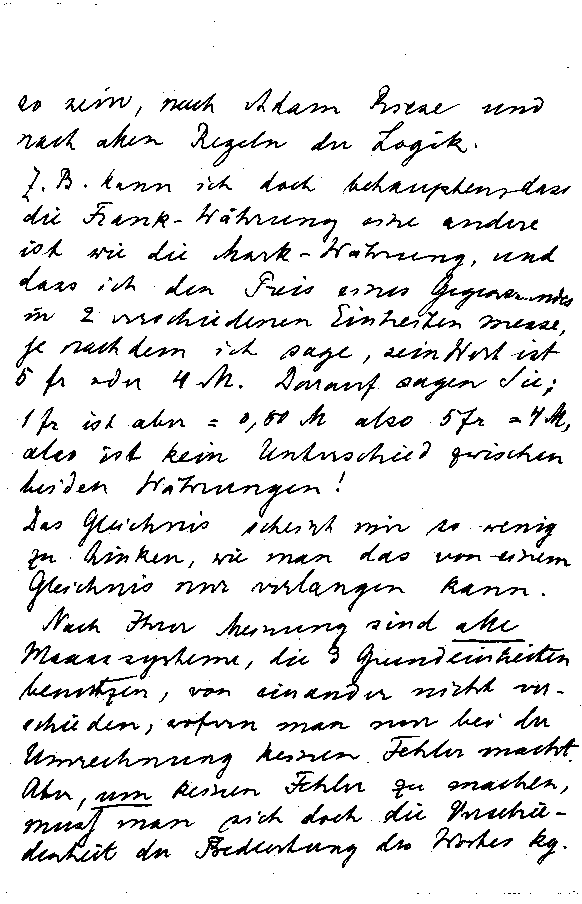 so sein, nach Adam Riese und
nach allen Regeln der Logik.
Z. B. kann ich doch behaupten, dass
die Frank-Währung eine andere
ist wie die Mark-Währung, und
dass ich den Preis eines Gegenstandes
in 2 verschiedenen Einheiten messe,
je nachdem ich sage, sein Wert ist
5 fr oder 4 M. Darauf sagen Sie;
1 fr ist aber = 0,80 M also 5 fr = 4 M,
also ist kein Unterschied zwischen
beiden Währungen!
Das Gleichnis scheint mir so wenig
zu hinken, wie man das von einem
Gleichnis nur verlangen kann.
Nach Ihrer Meinung sind alle
Maasssysteme, die 3 Grundeinheiten
benutzen, von einander nicht ver-
schieden, sofern man nur bei der
Umrechnung keinen Fehler macht.
Aber, um keinen Fehler zu machen,
muss man sich doch die Verschie-
denheit der Bedeutung des Wortes kg.